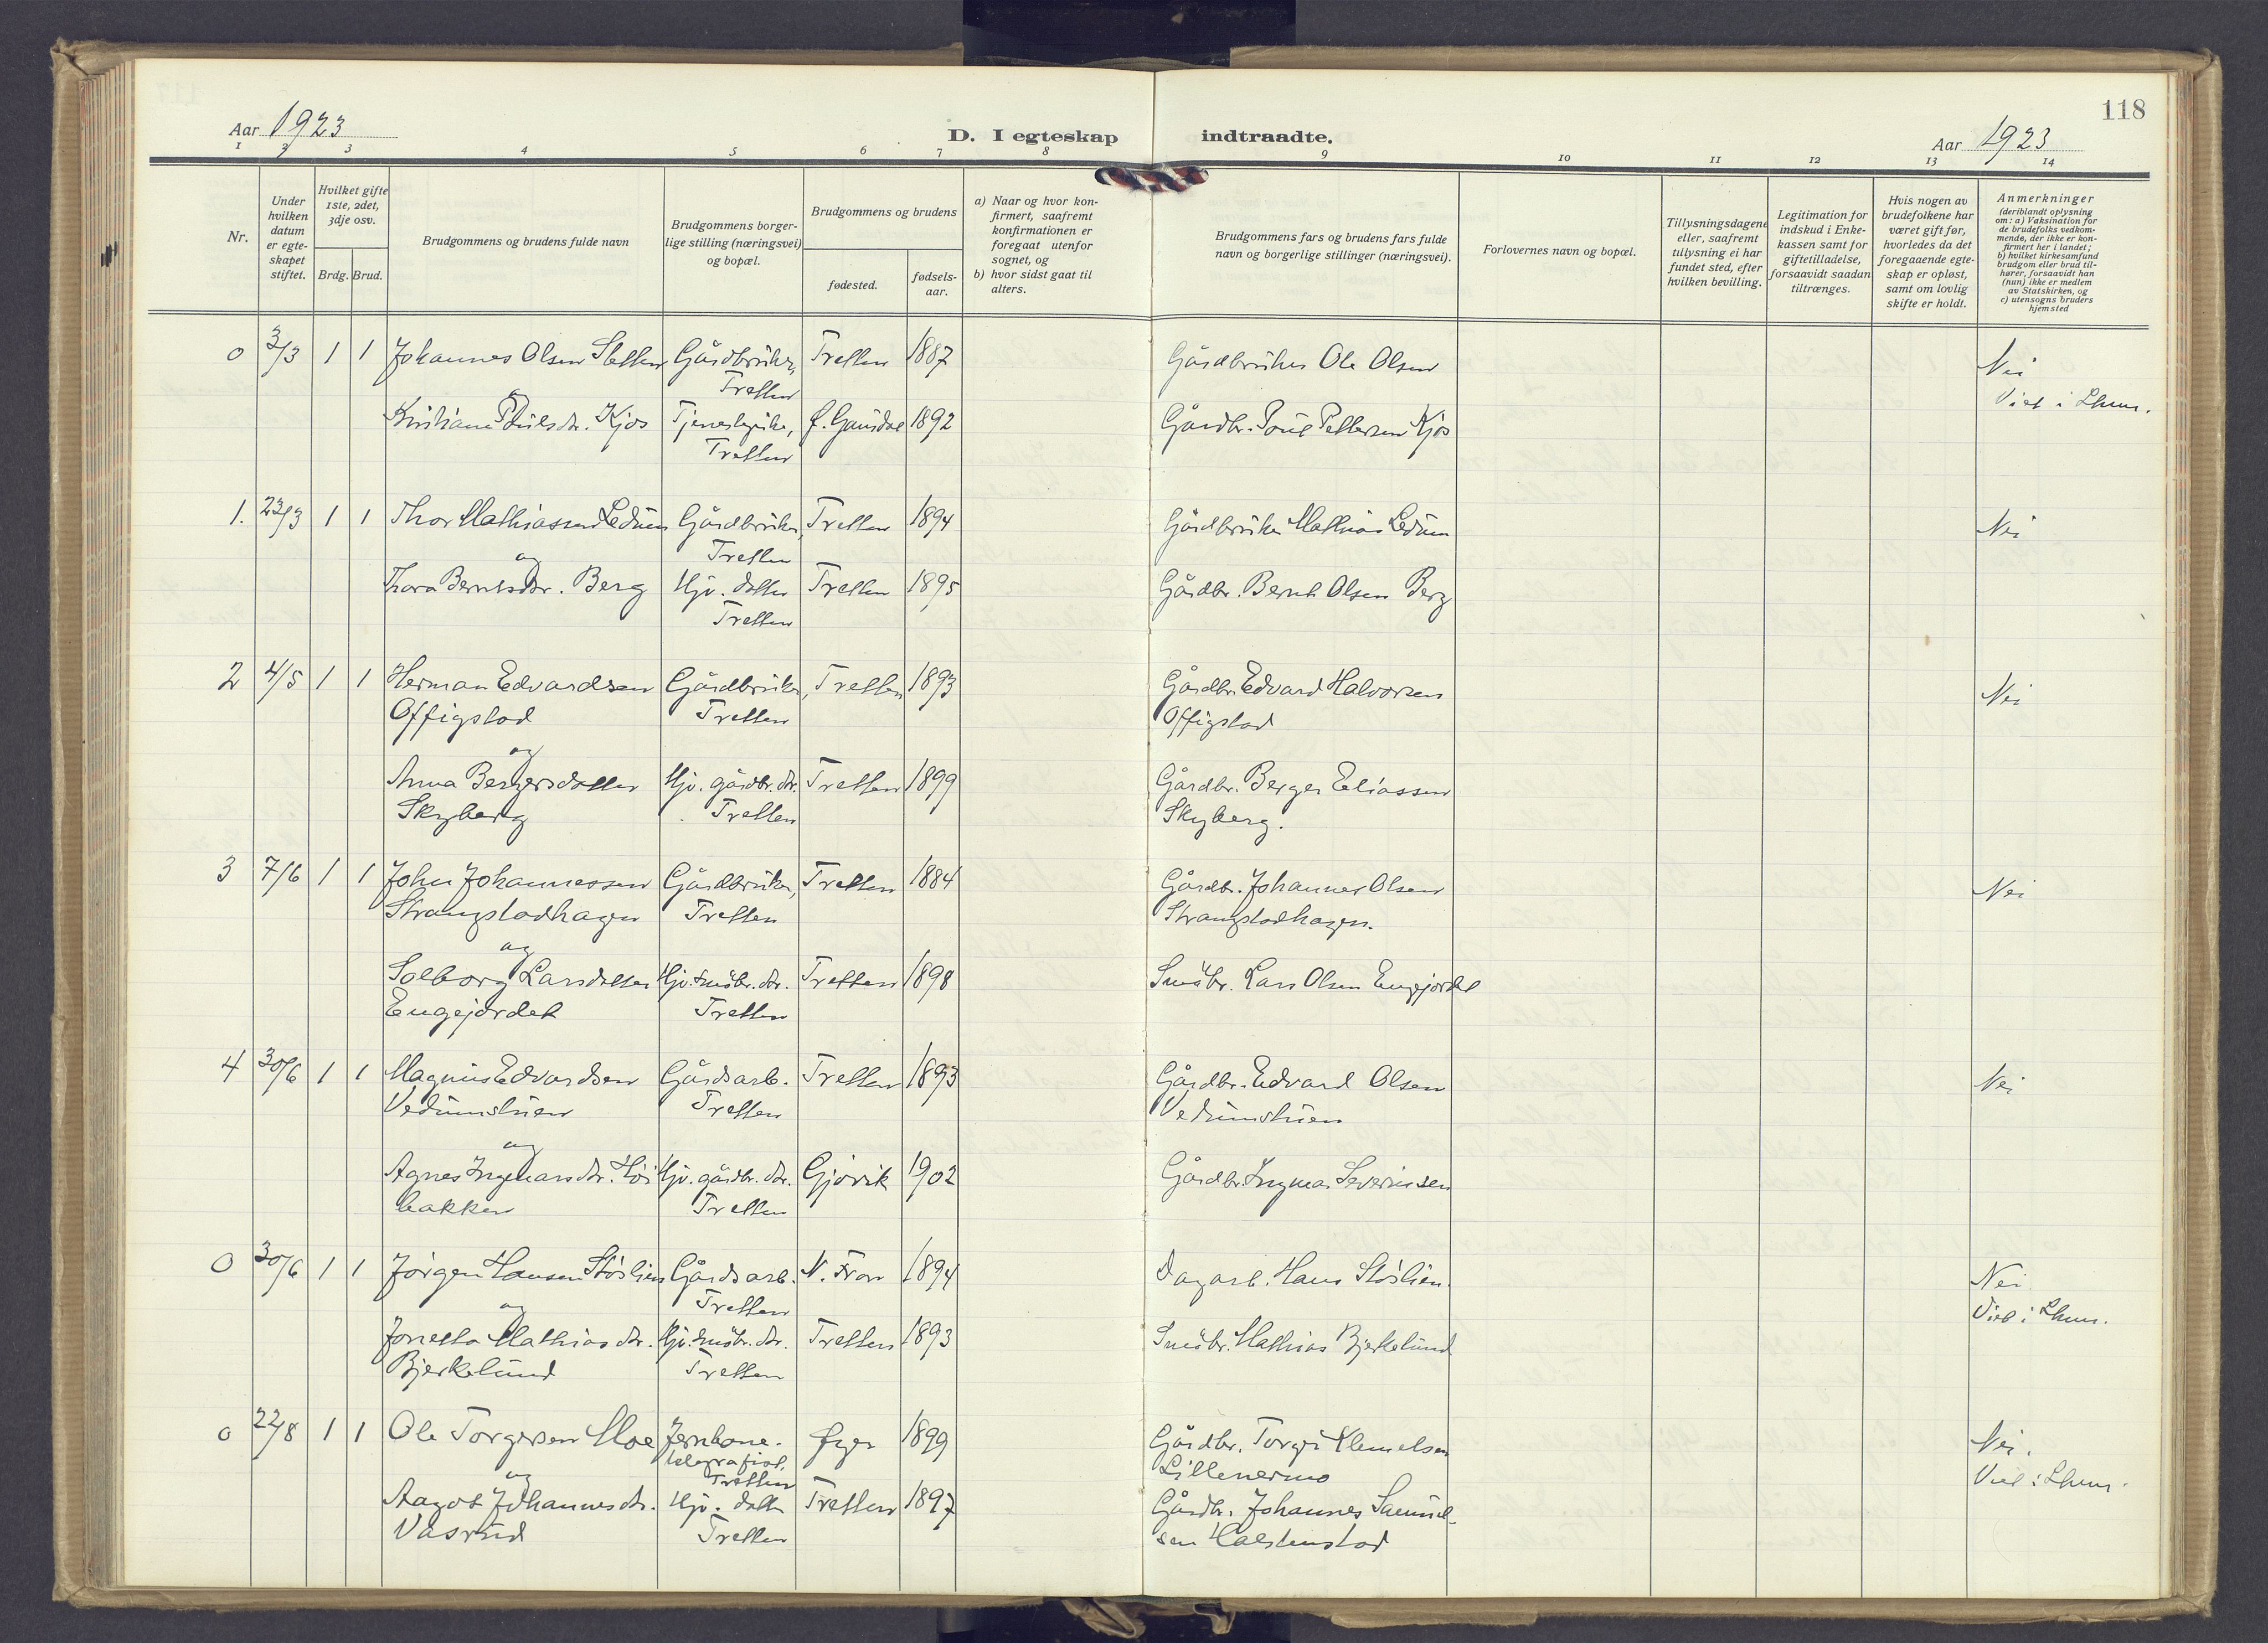 118
Aar 1923
D. I egteskap indtraadte.
Aar 1923
1 2 3 4 5 6 7 8 9 10 11 12 13 14
Nr.
Under
hvilken
datum
er egte-
skapet
stiftet.
Hvilket gifte
1ste, 2det,
3dje osv.
Brdg. Brud.
Brudgommens og brudens fulde navn
Brudgommens borger-
lige stilling (næringsvei)
og bopæl.
Brudgommens og brudens
fødested.
fødsels-
aar.
a) Naar og hvor kon-
firmert, saafremt
konfirmationen er
foregaat utenfor
sognet, og
b) hvor sidst gaat til
alters.
Brudgommens fars og brudens fars fulde
navn og borgerlige stillinger (næringsvei).
Forlovernes navn og bopæl.
Tillysningsdagene
eller, saafremt
tillysning ei har
fundet sted, efter
hvilken bevilling.
Legitimation for
indskud i Enke-
kassen samt for
giftetilladelse,
forsaavidt saadan
tiltrænges.
Hvis nogen av
brudefolkene har
været gift før,
hvorledes da det
foregaaende egte-
skap er opløst,
samt om lovlig
skifte er holdt.
Anmerkninger
(deriblandt oplysning
om: a) Vaksination for
de brudefolks vedkom-
mende, der ikke er kon-
firmert her i landet;
b) hvilket kirkesamfund
brudgom eller brud til-
hører, forsaavidt han
(hun) ikke er medlem
av Statskirken, og
c) utensogns bruders
hjemsted
0 3/3 1 1 Johannes Olsen Sletten Gårdbruker, Tretten 1887 Gårdbruker Ole Olsen Nei
og Tretten Viet i Lhmr.
Kristiane Pdr. Kjos Tjenestepike, Ø. Gausdal 1892 Gårdbr. Poul Pettersen Kjos
Tretten
1. 23/3 1 1 Thor Mathiassen Ledum Gårdbruker, Tretten 1894 Gårdbruker Mathias Ledum Nei
og Tretten
Thora Berntsdtr. Berg Hjv. datter Tretten 1895 Gårdbr. Bernt Olsen Berg
Tretten
2 4/5 1 1 Herman Edvardsen Gårdbruker, Tretten 1893 Gårdbr. Edvard Halvorsen Nei
Offigstad Tretten Offigstad
og
Anna Bergersdatter Hjv. gårdbr. dtr. Tretten 1899 Gårdbr. Berger Eliassen
Skyberg Tretten Skyberg.
3 7/6 1 1 John Johannessen Gårdbruker, Tretten 1884 Gårdbr. Johannes Olsen Nei
Strangstadhagen Tretten Strangstadhagen.
og
Solborg Larsdatter Hjv. småbr. dtr. Tretten 1898 Småbr. Lars Olsen Engejordet
Engejordet Tretten
4 30/6 1 1 Magnus Edvardsen Gårdsarb. Tretten 1893 Gårdbr. Edvard Olsen Nei
Vedumstuen Tretten Vedumstuen
og
Agnes Ingmarsdtr. Høi Hjv. gårdbr. dtr. Gjøvik 1902 Gårdbr. Ingmar Severinsen
bakken Tretten
0 30/6 1 1 Jørgen Hansen Støslien Gårdsarb. N. Fron 1894 Dagarb. Hans Støslien. Nei
og Tretten Viet i Lhmr.
Jonetta Mathiasdtr. Hjv. småbr. dtr. Tretten 1893 Småbr. Mathias Bjerkelund
Bjerkelund Tretten
0 22/8 1 1 Ole Torgersen Moe Jernbane- Øyer 1899 Gårdbr. Torger Klemetsen Nei.
telegrafist, Lillenermo Viet i Lhmr.
og Tretten
Aagot Johannesdtr. Hjv. datter Tretten 1897 Gårdbr. Johannes Samuel-
Vasrud Tretten sen Halstenstad